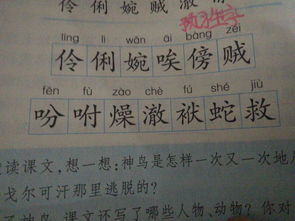 伶俐婉贼澈
líng lì wǎn āi bàng zéi
伶俐婉唉傍贼
fēn fù zào chè fú shé jiù
吩咐燥澈袱蛇救
读课文，想一想：神鸟是怎样一次又一次地
戈尔可汗那里逃脱的？
神鸟，课文还写了哪些人物、动物？你对